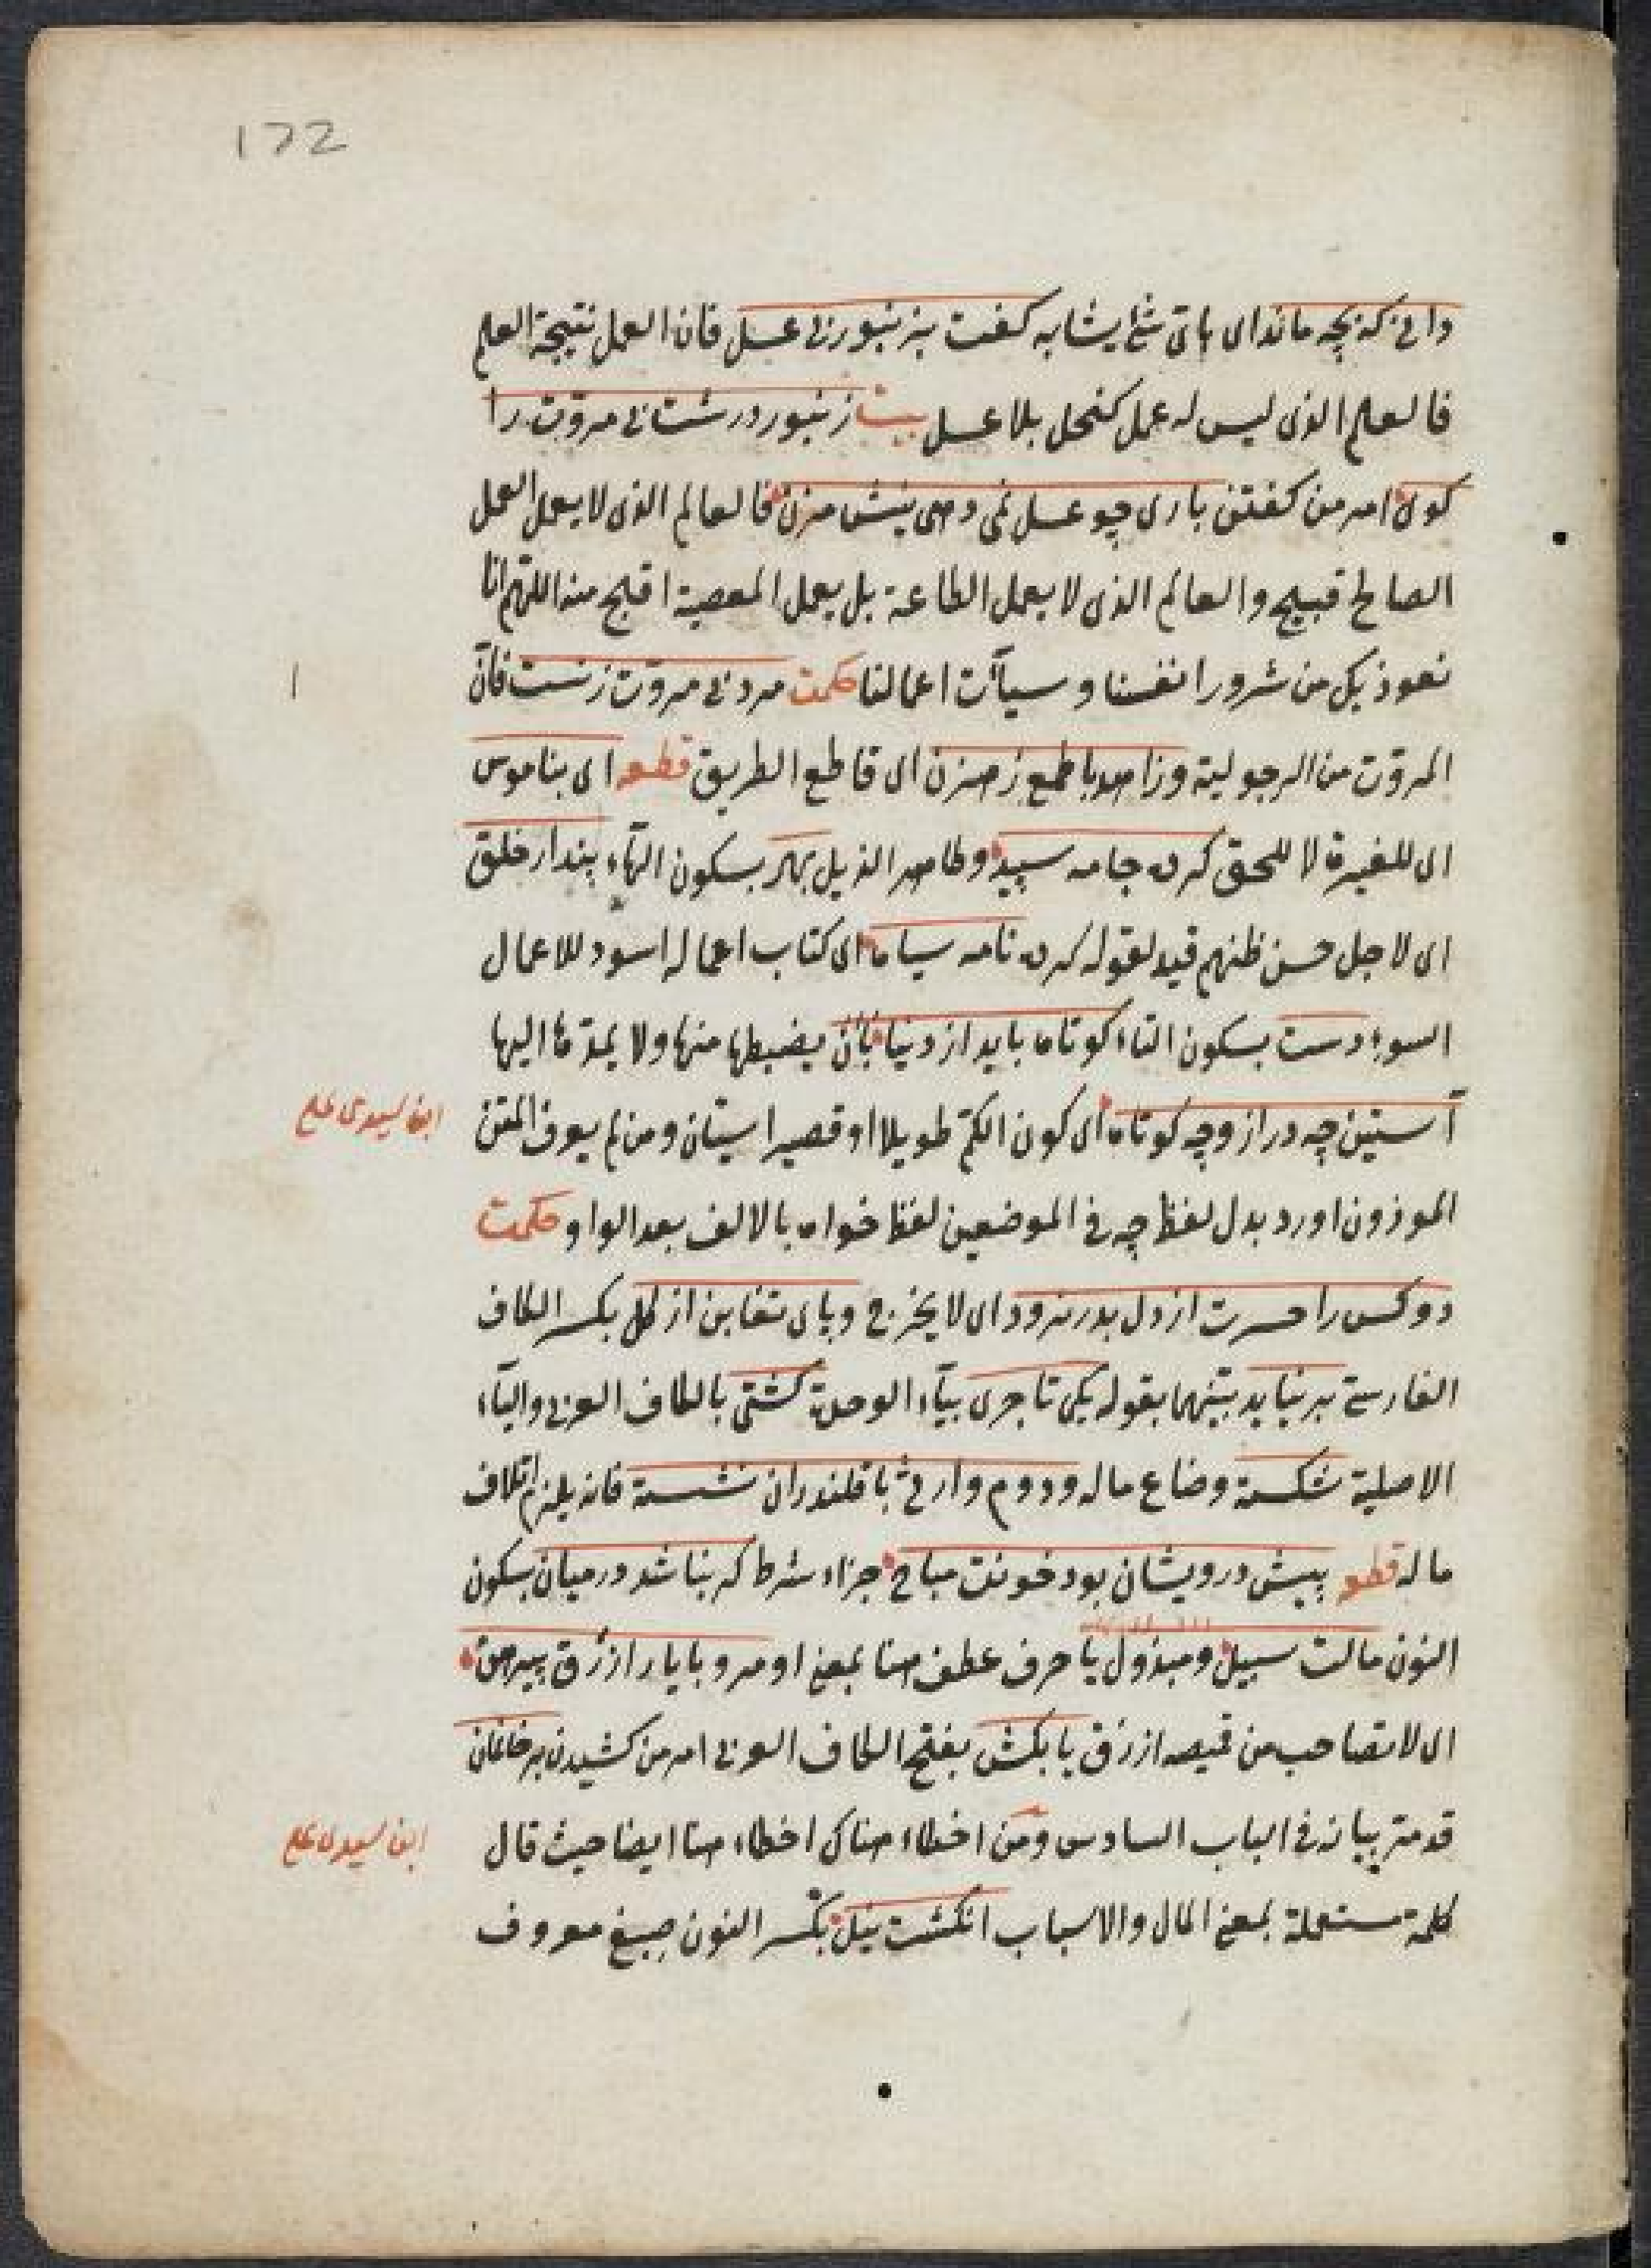 172
دانی که بچه ماند ای بای شئ یشابه کفت بزنبور بی عسل فان العمل نتیجة العلم
فالعلم الذی لیس له عمل کنحل بلا عسل بیت زنبور درشت بی مروّت را
کوی امر من کفتن باری چو عسل نمی دهی نیش مزن فالعالم الذی لا یعمل العمل
الصالح قبیح والعالم الذی لا یعمل الطاعة بل یعمل المعصیة اقبح منه اللهم انا
نعوذ بک من شرور انفسنا و سیأت اعمالنا حکمت مرد بی مروّت زنست فانّ
المروّت من الرجولیة وزاهد با طمع رهزن ای قاطع الطریق قطعه ای بناموس
ای للغیرة لا للحق کرده جامه سپید وطاهر الذیل بهر بسکون الهاء پندار خلق
ای لاجل حسن ظنهم قید لقوله کرده نامه سیاه ای کتاب اعماله اسود للاعمال
السوء دست بسکون التاء کوتاه باید از دنیا بأن یضبطها منها ولا یمدّها الیها
آستین چه دراز وچه کوتاه ای کون الکمّ طویلا او قصیرا سیّان ومن لم یعرف المتن
ابن سیدی علی
الموزون اورد بدل لفظ چه فی الموضعین لفظ خواه بالالف بعد الواو حکمت
دو کس را حسرت از دل بدر نرود ای لا یخرج وپای تغابن از کل بکسر الکاف
الفارسیة برنیاید بیّنهما بقوله یکی تاجری بیاء الوحدة کشتی بالکاف العربی والیاء
الاصلیة شکسته وضاع ماله ودوم وارثی با قلندران نشسته فانه یلزم اتلاف
ماله قطعه پیش درویشان بود خونت مباح جزاء شرط کر نباشد درمیان بسکون
النون مالت سبیل ومبذول یا حرف عطف هنا بمعنی او مرو با یار ازرق پیرهن
ای لا تصاحب من قمیصه ازرق یا بکش بفتح الکاف العربی امر من کشیدن بر خانمان
قد مرّ بیانه فی الباب السادس ومن اخطاء هناک اخطاء هنا ایضا حیث قال
ابن سیدی علی
کلمة مستعملة بمعنی المال والاسباب انکشت نیل بکسر النون صبغ معروف